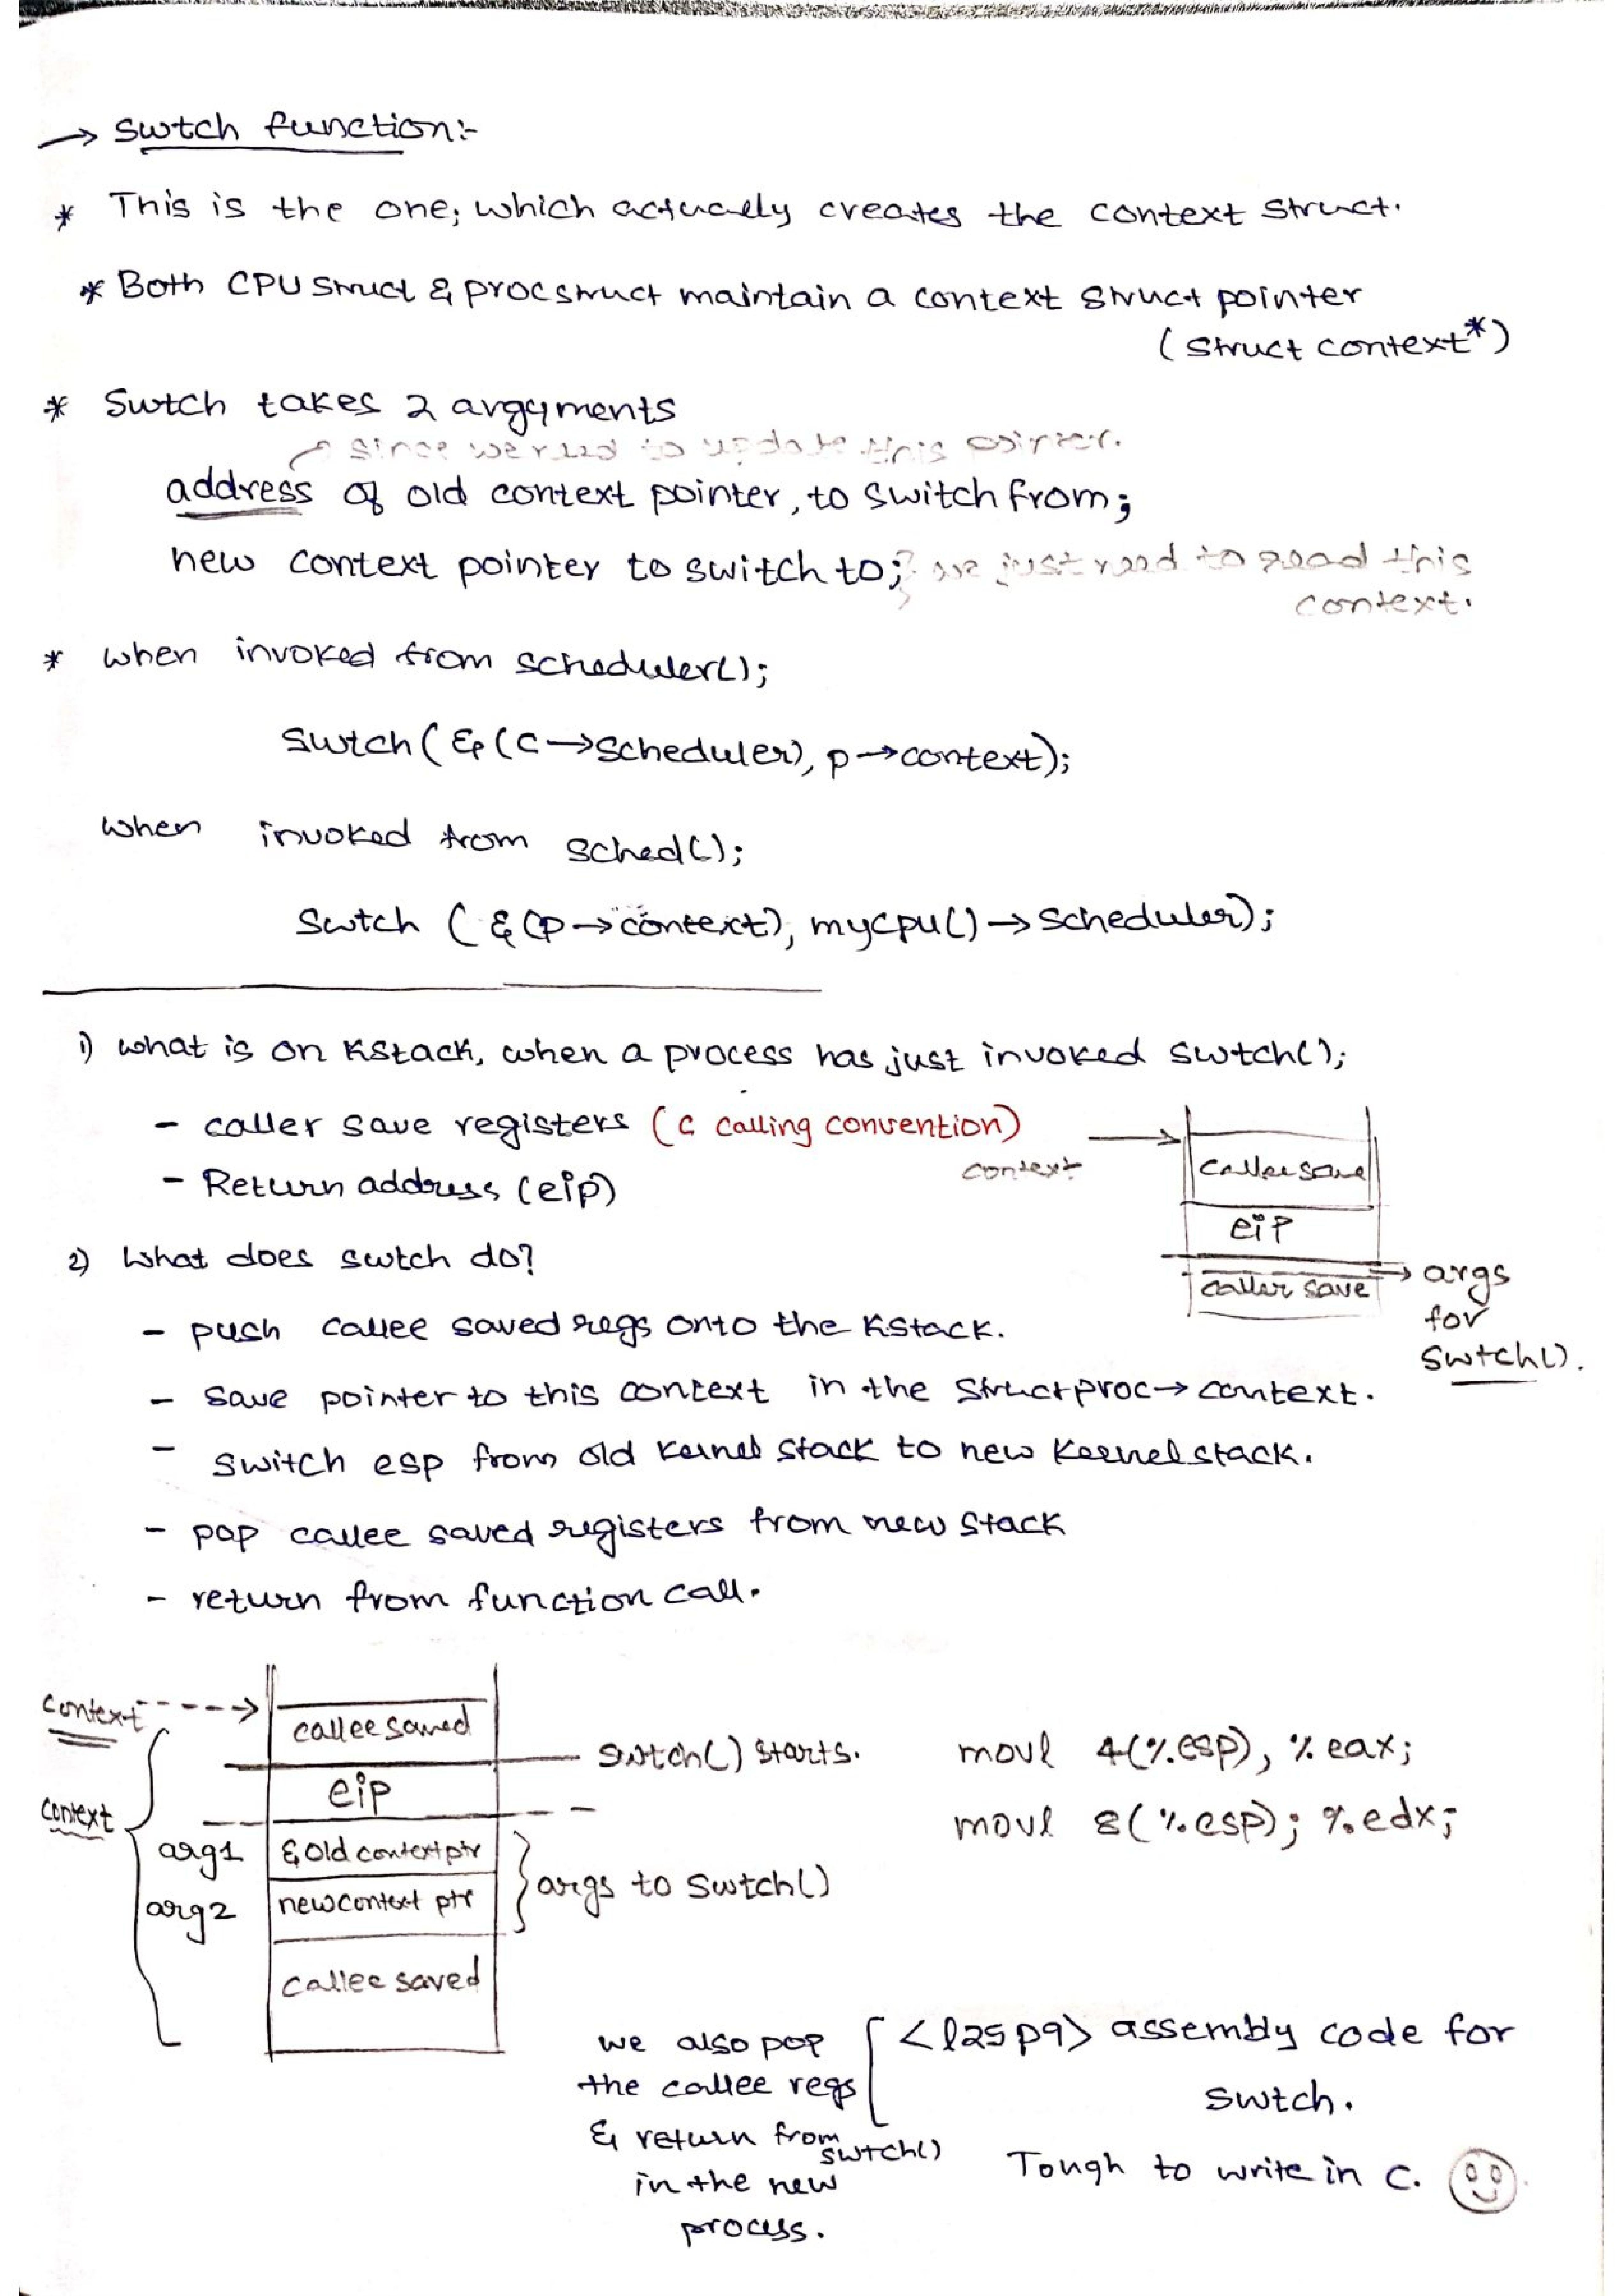 → swtch function:-
* This is the one; which actually creates the context struct.
* Both CPU struct & proc struct maintain a context struct pointer
(struct context*)
* Swtch takes 2 argyments
since we need to update this pointer.
address of old context pointer, to switch from;
new context pointer to switch to; we just need to read this
context.
* when invoked from scheduler();
swtch (&(c→scheduler), p→context);
when invoked from sched();
swtch (&(p→context), mycpu()→scheduler);
1) what is on Kstack, when a process has just invoked swtch();
- caller save registers (C calling convention)
- Return address (eip)
context
callee save
eip
caller save
→ args
for
swtch().
2) What does swtch do?
- push callee saved regs onto the Kstack.
- save pointer to this context in the struct proc→context.
- switch esp from old kernel stack to new kernel stack.
- pop callee saved registers from new stack
- return from function call.
context
callee saved
swtch() starts.
eip
context
arg1 &old context ptr
arg2 new context ptr
args to swtch()
callee saved
movl 4(%esp), %eax;
movl 8(%esp); %edx;
we also pop
the callee regs
& return from
swtch()
in the new
process.
<l25 p9> assembly code for
swtch.
Tough to write in C.